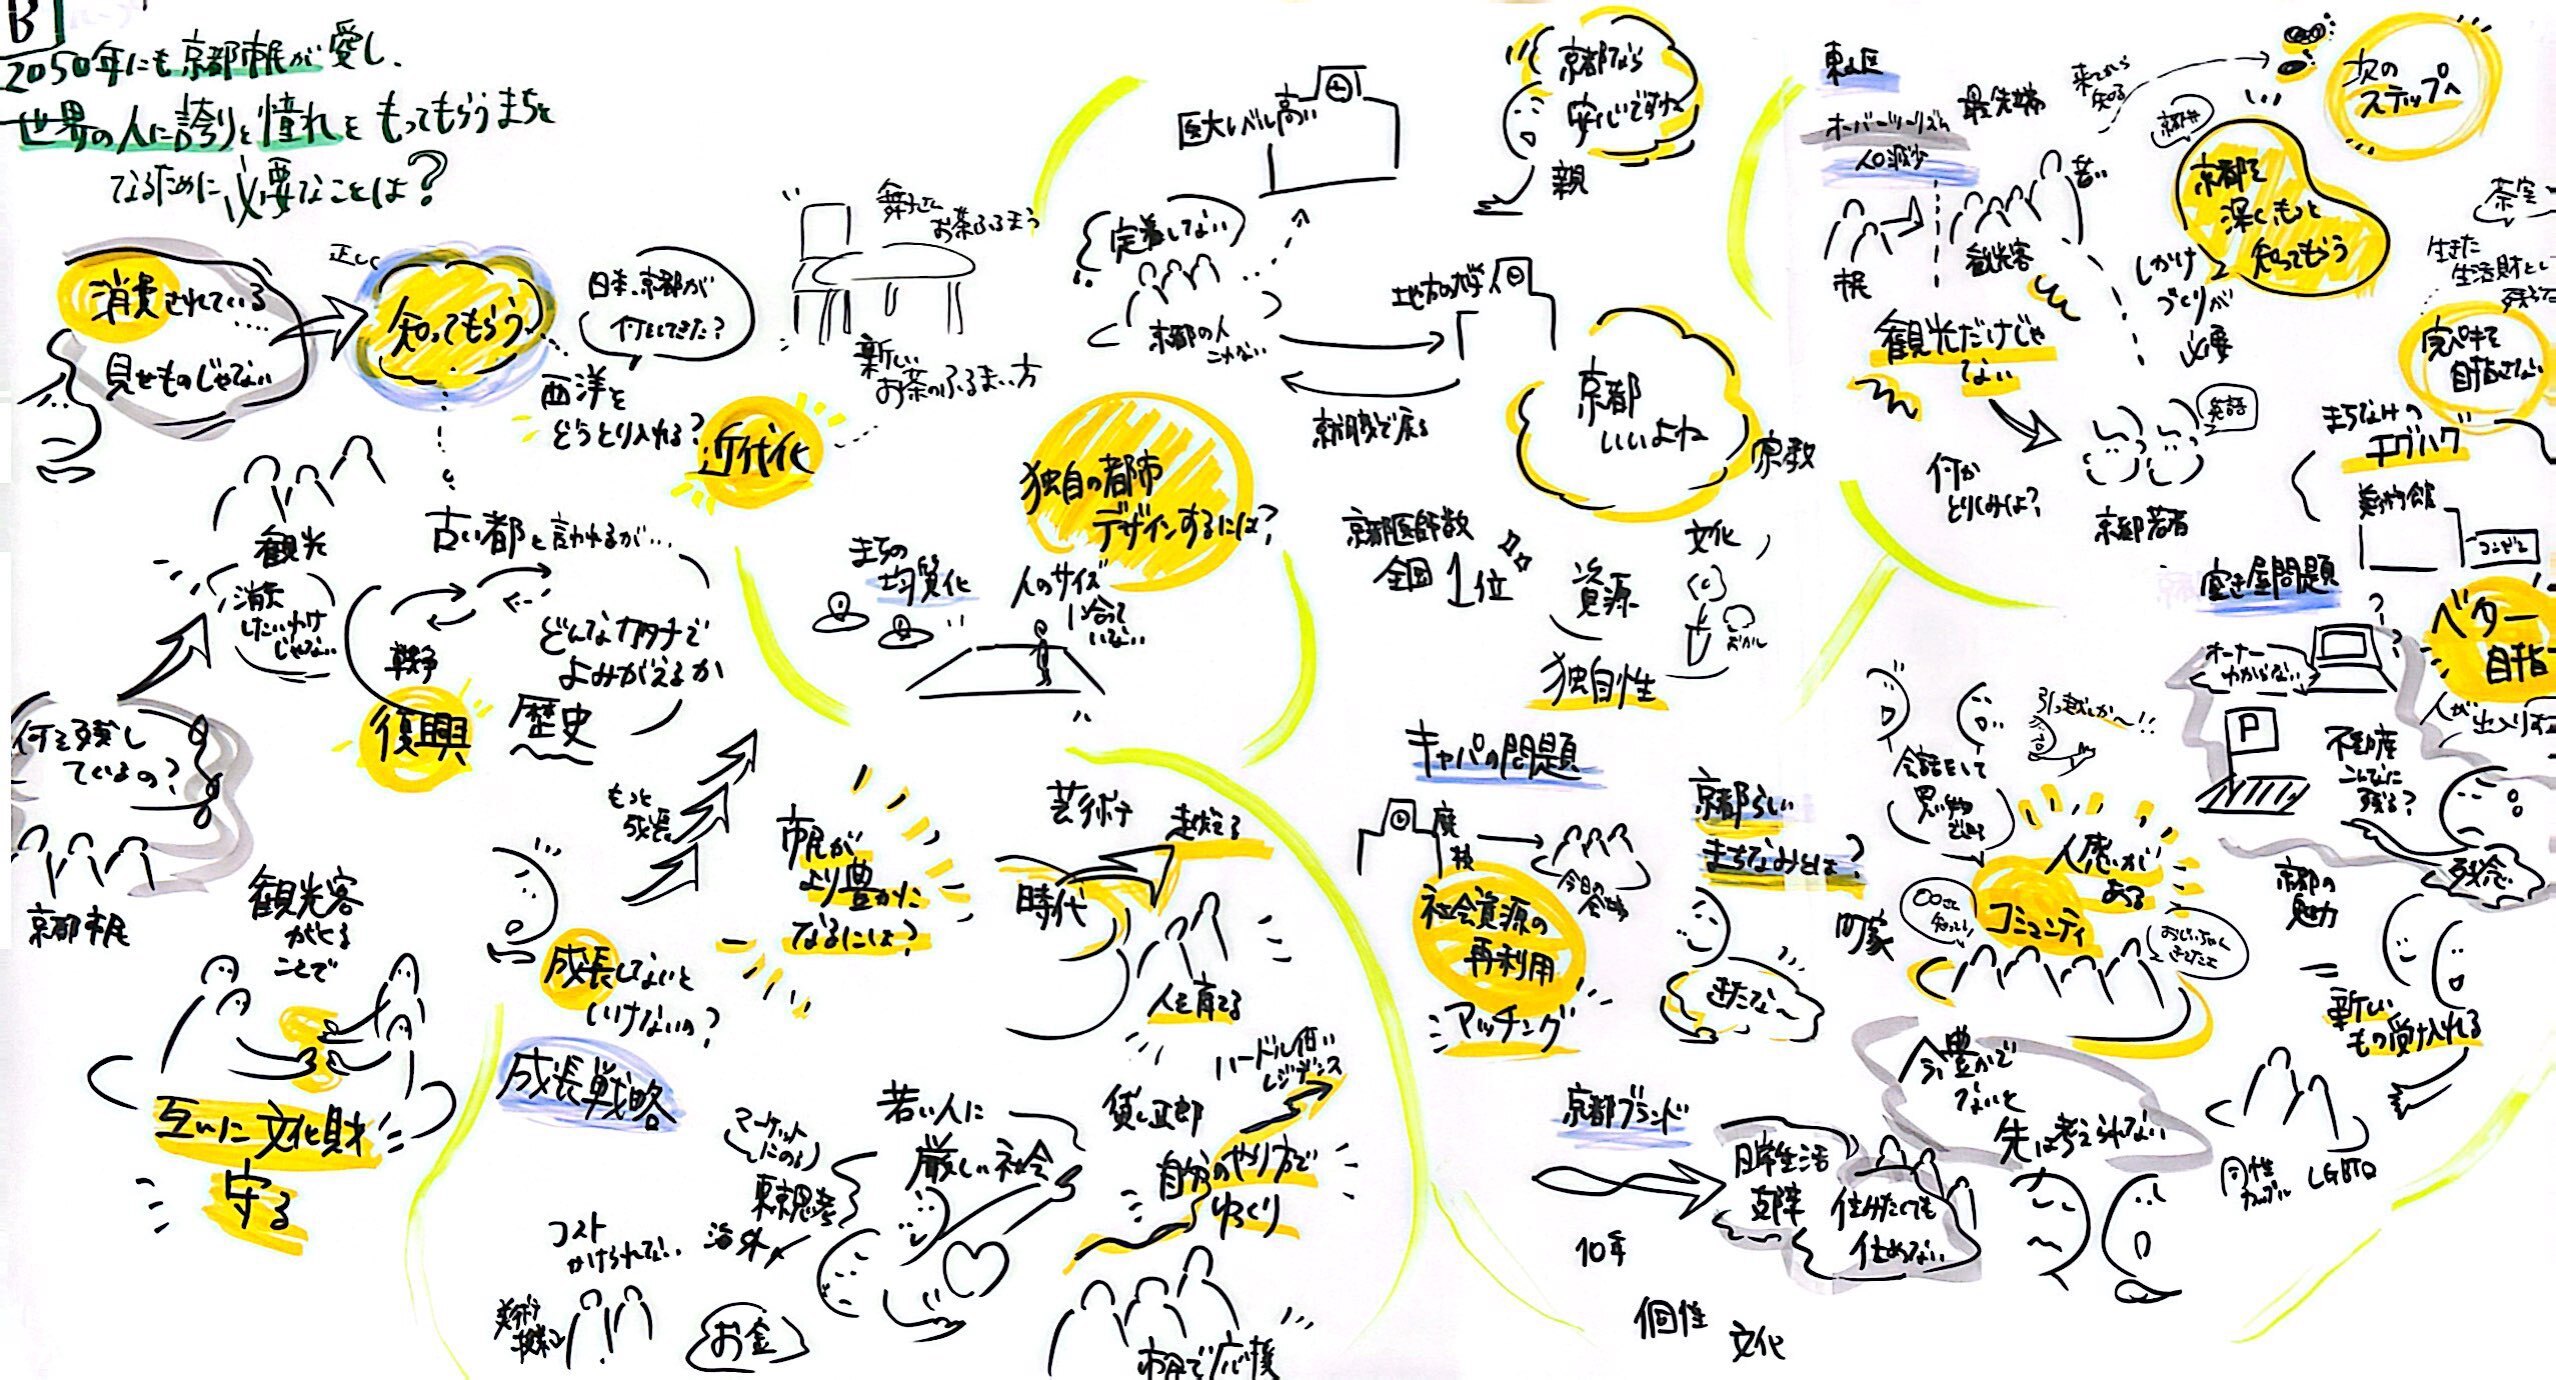 B
2050年にも京都市民が愛し、
世界の人に誇りと憧れをもってもらうまちと
なるために必要なことは?
消費されている
見せものじゃない
正しく
知ってもらう
日本、京都が
何をしてきた?
西洋を
どうとり入れる?
近代化
舞子さん
お茶ふるまう
新しい
お茶のふるまい方
観光
消費
したいわけ
じゃない
古い都と言われるが…
戦争
復興
歴史
どんなカタチで
よみがえるか
何を残し
ているの?
京都市民
観光客
がくる
ことで
互いに文化財
守る
医大レベル高い
京都なら
安心ですね
親
定着してない
京都の人
こない
地方の大学
就職で戻る
京都
いいよね
宗教
独自の都市
デザインするには?
まちの
均質化
人のサイズ
に合って
いない
京都医師数
全国1位
資源
文化
おかし
独自性
もっと
成長
成長しないと
いけないの?
成長戦略
市民が
より豊かに
なるには?
芸術
時代
超える
人を育てる
ハードル低い
レジデンス
若い人に
厳しい社会
マーケット
にのる
東京思考
海外
コスト
かけられてない
お金
貸し
自分のやり方で
ゆっくり
市民で応援
キャパの問題
廃校
社会資源の
再利用
マッチング
京都らしい
まちなみとは?
きたな~
町家
京都ブランド
10年
個性
文化
日常生活
支障
住みたくても
住めない
今、豊かで
ないと
先は考えられない
会話をして
買い物
引っ越しか~!!
人感いが
ある
コミュニティ
〇〇さん
知ってる
おじいちゃん
東山区
オーバーツーリズム
人口減少
最先端
市民
観光客
苦い
来てから
知る
次の
ステップへ
京都を
深くもっと
知ってもらう
しかけ
づくりが
必要
観光だけじゃ
ない
何か
とりくみは?
京都若者
会話
茶室
生きた
生活財とし
完ペキを
目指さない
まちなみの
チグハグ
美術館
コンビニ
空き屋問題
オーナー
わからない
P
不動産
こんなに
残る?
ベター
目指
人が出入りする
残念
京都の
魅力
新しい
もの受け入れる
同性
カップル
LGBTQ